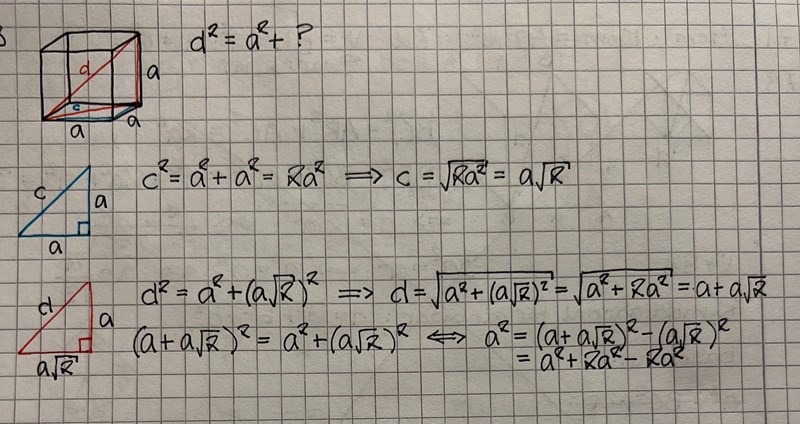 3
d² = a² + ?
d
a
c
a
a
c² = a² + a² = 2a² ⟹ c = √2a² = a√2
c
a
a
d² = a² + (a√2)² ⟹ d = √a² + (a√2)² = √a² + 2a² = a + a√2
d
a
a√2
(a + a√2)² = a² + (a√2)² ⟺ a² = (a + a√2)² − (a√2)²
= a² + 2a² − 2a²